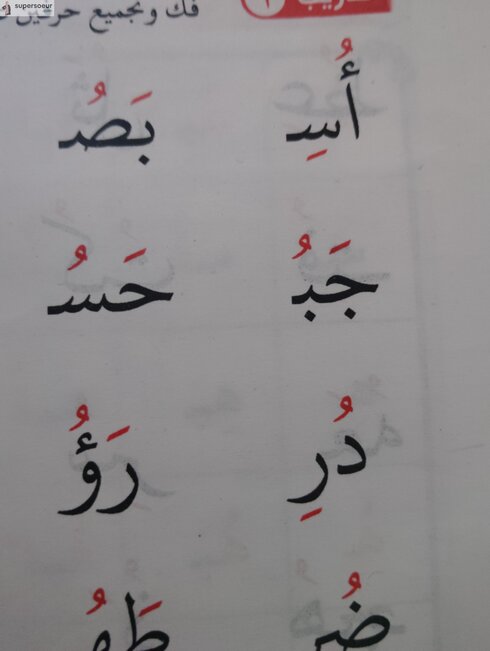 supersoeur
فك وتجميع حرفين
أُسِ بَصُ
جَبُ حَسُ
دُرِ رَؤُ